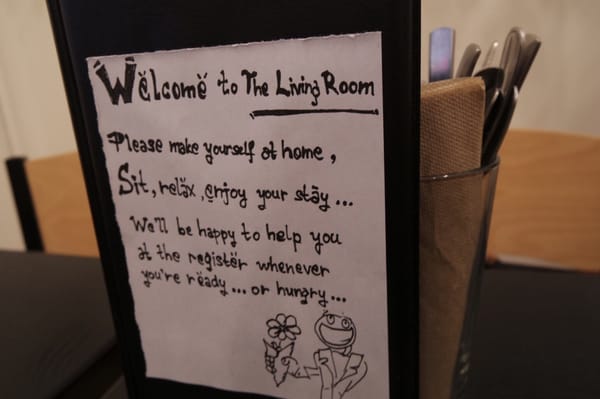 Welcome to The Living Room
Please make yourself at home,
Sit, relax, enjoy your stay...
We'll be happy to help you
at the register whenever
you're ready... or hungry...